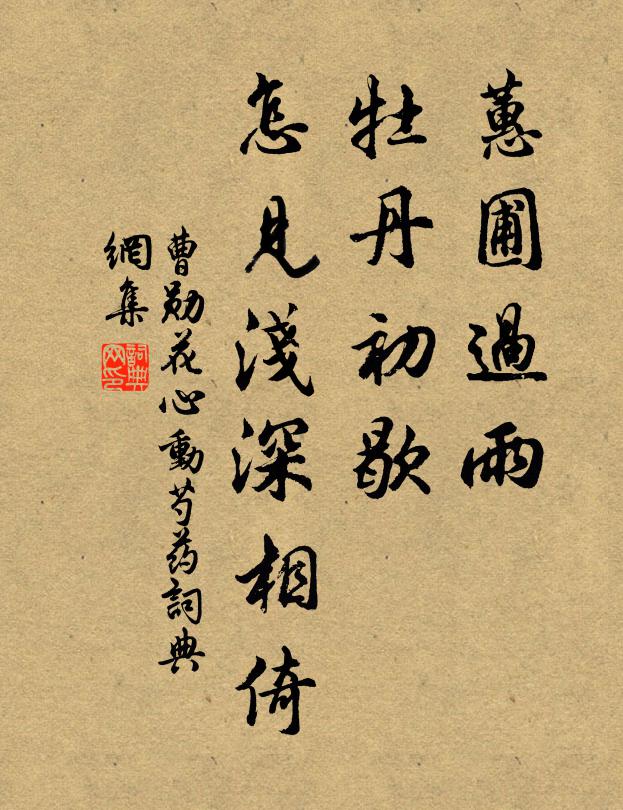 蕙圃過雨
牡丹初歇
怎見淺深相倚
曹勛花心動芍药詞典
網集
詞典网印